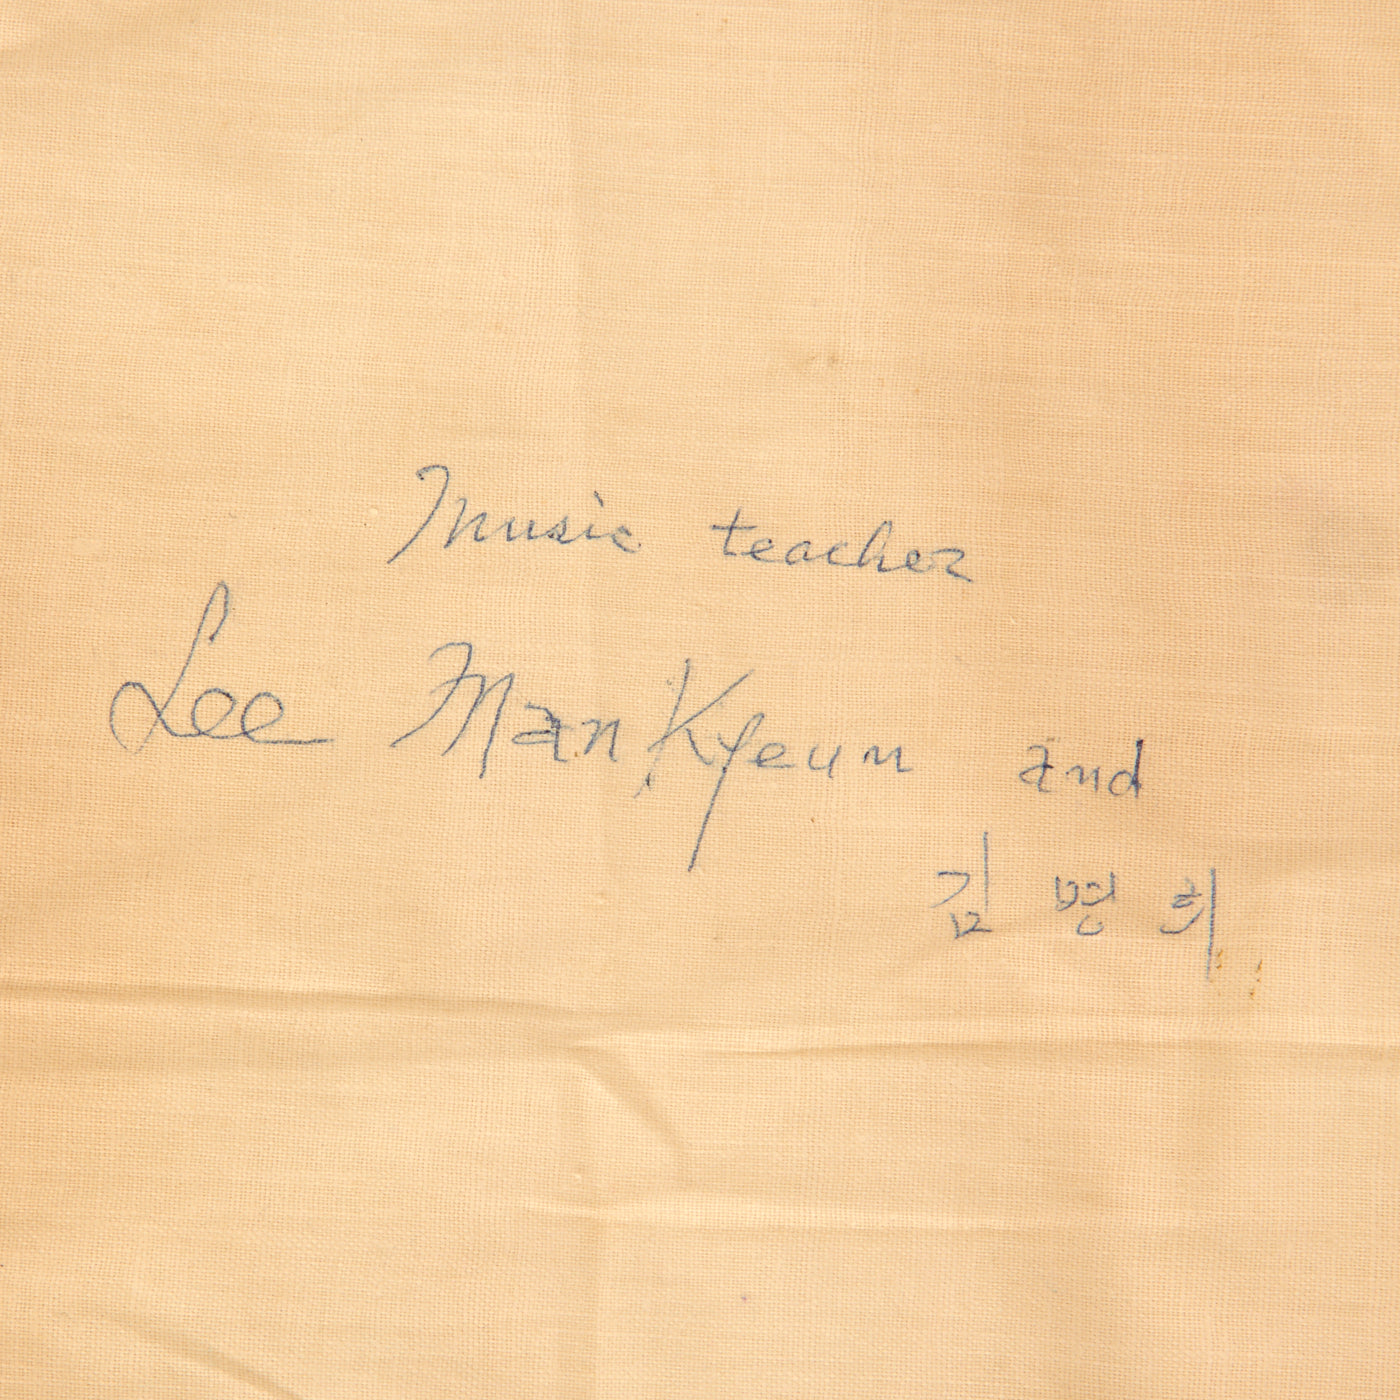 Music teacher
Lee Man Kyeun and
김 명 희